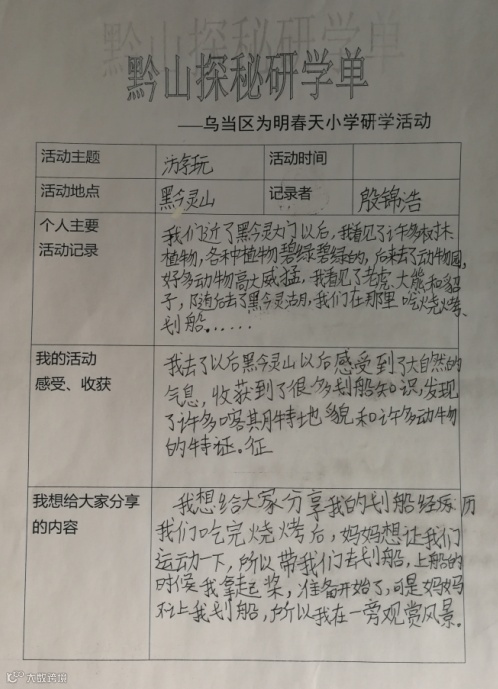 黔山探秘研学单
——乌当区为明春天小学研学活动
活动主题 游玩 活动时间
活动地点 黔灵山 记录者 殷锦浩
个人主要
活动记录
我们近了黔灵大门以后,我看见了许多树木
植物,各种植物碧绿碧绿的,后来去了动物园,
好多动物高大威猛,我看见了老虎、大熊和豹
子,随后去了黔灵湖,我们在那里吃烧烤、
划船……
我的活动
感受、收获
我去了以后黔灵山以后感受到了大自然的
气息,收获到了很多划船知识,发现
了许多喀斯特地貌和许多动物
的特证。征
我想给大家分享
的内容
我想给大家分享我的划船经历
我们吃完烧烤后,妈妈想让我们
运动一下,所以带我们去划船,上船的
时候我拿起桨,准备开始了,可是妈妈
不让我划船,所以我在一旁观赏风景。
大数跨境